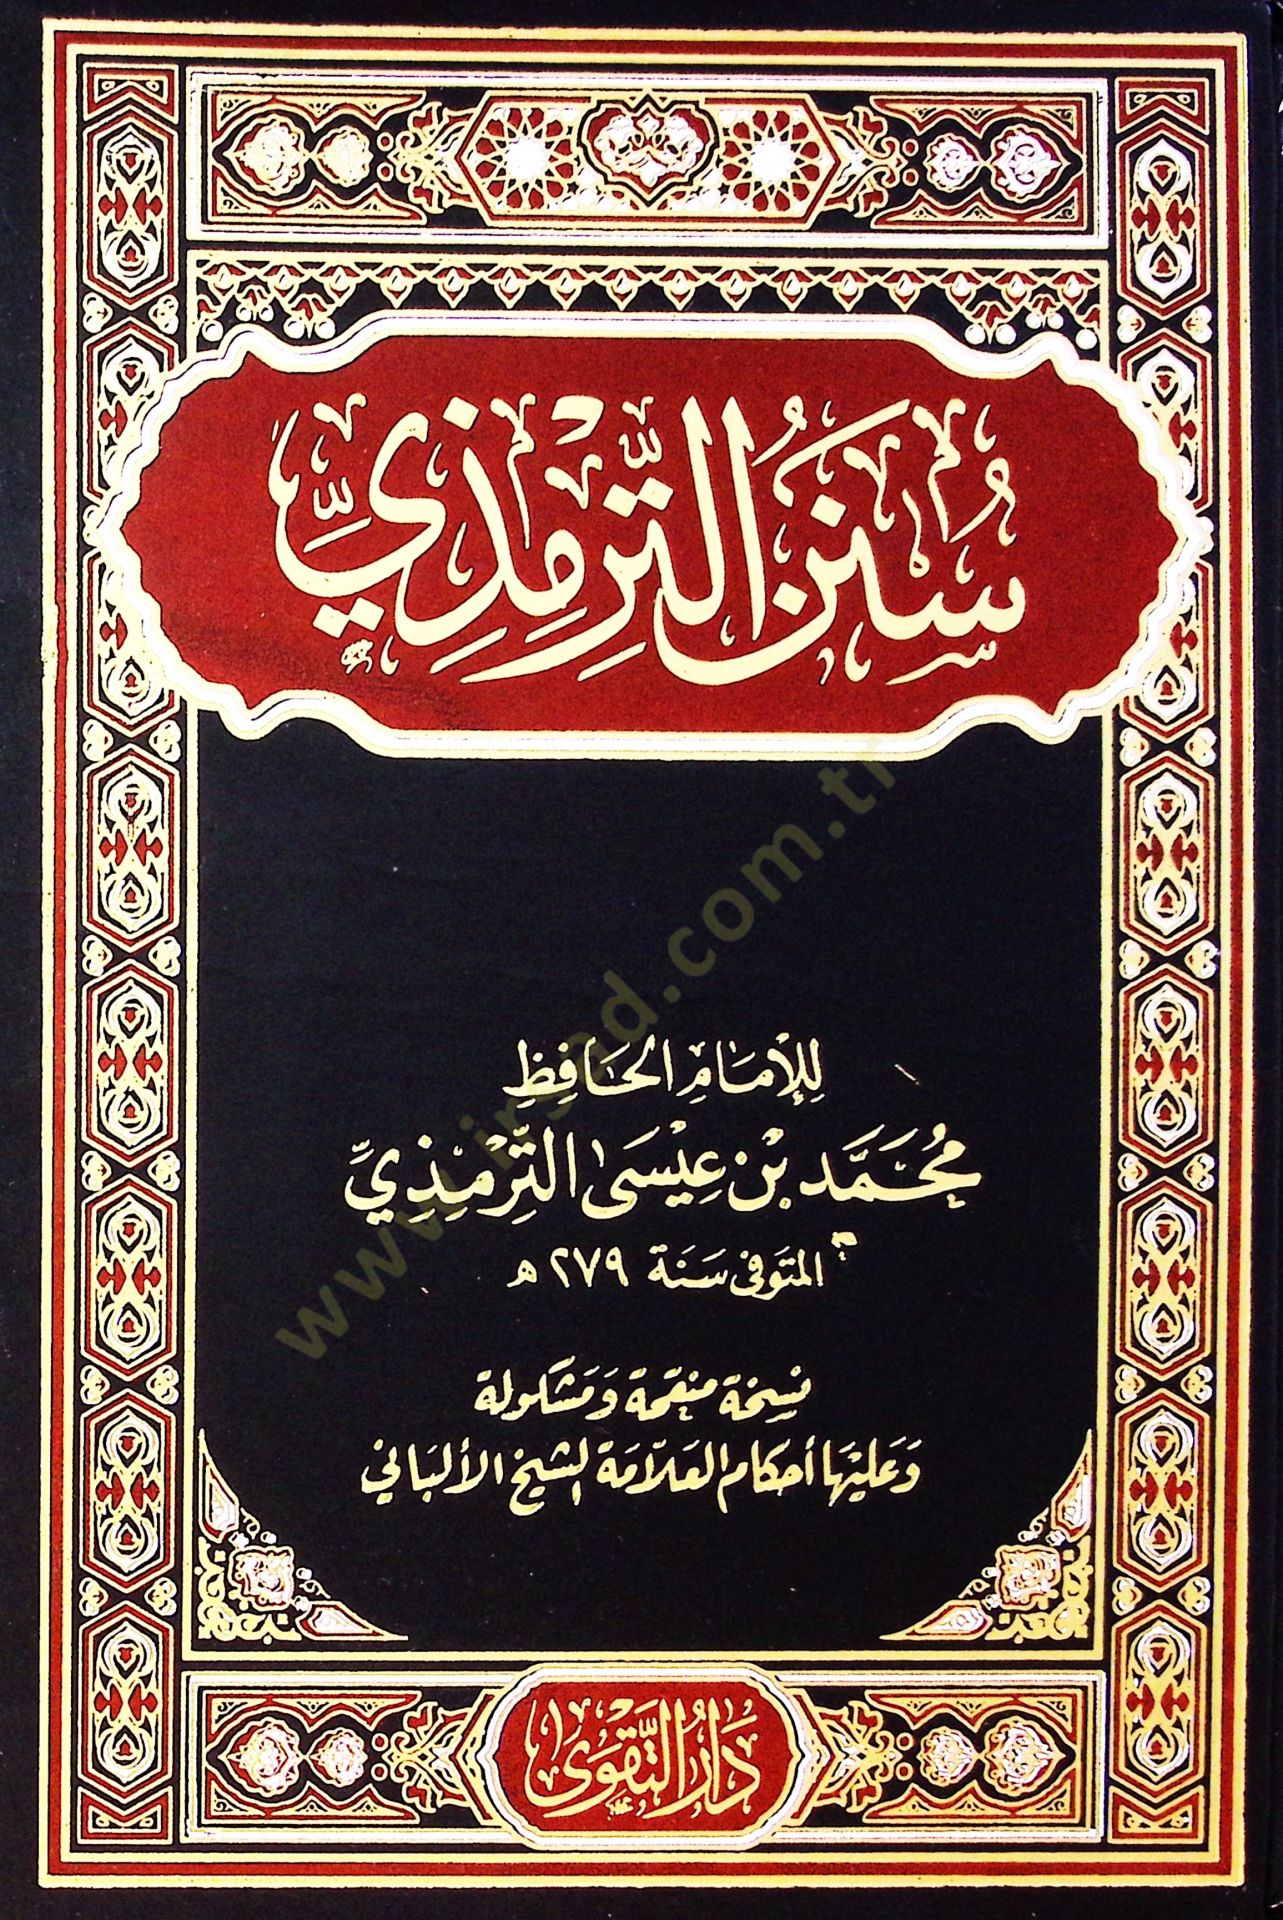 سُنَنُ التِّرْمِذِيِّ
لِلْإِمَامِ الْحَافِظِ
مُحَمَّد بْن عِيْسَى التِّرْمِذِيِّ
المتوفى سَنَة ٢٧٩ هـ
نسخة منقحة وَمَشكولة
وَعَليْهَا أحكام العَلّامَة الشيخ الألبَاني
دَارُ التَّقْوَى
www.irsad.com.tr